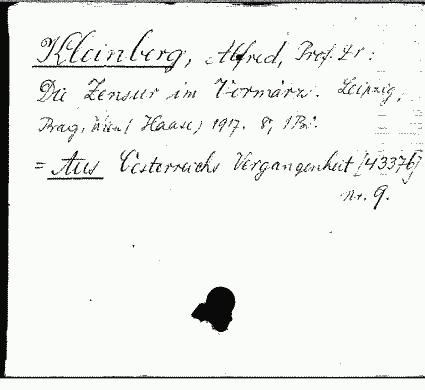 Kleinberg, Alfred, Prof. Dr:
Die Zensur im Vormärz. Leipzig,
Prag, Wien (Haase) 1917. 8, 1 Bl.
= Aus Oesterreichs Vergangenheit [43376]
Nr. 9.